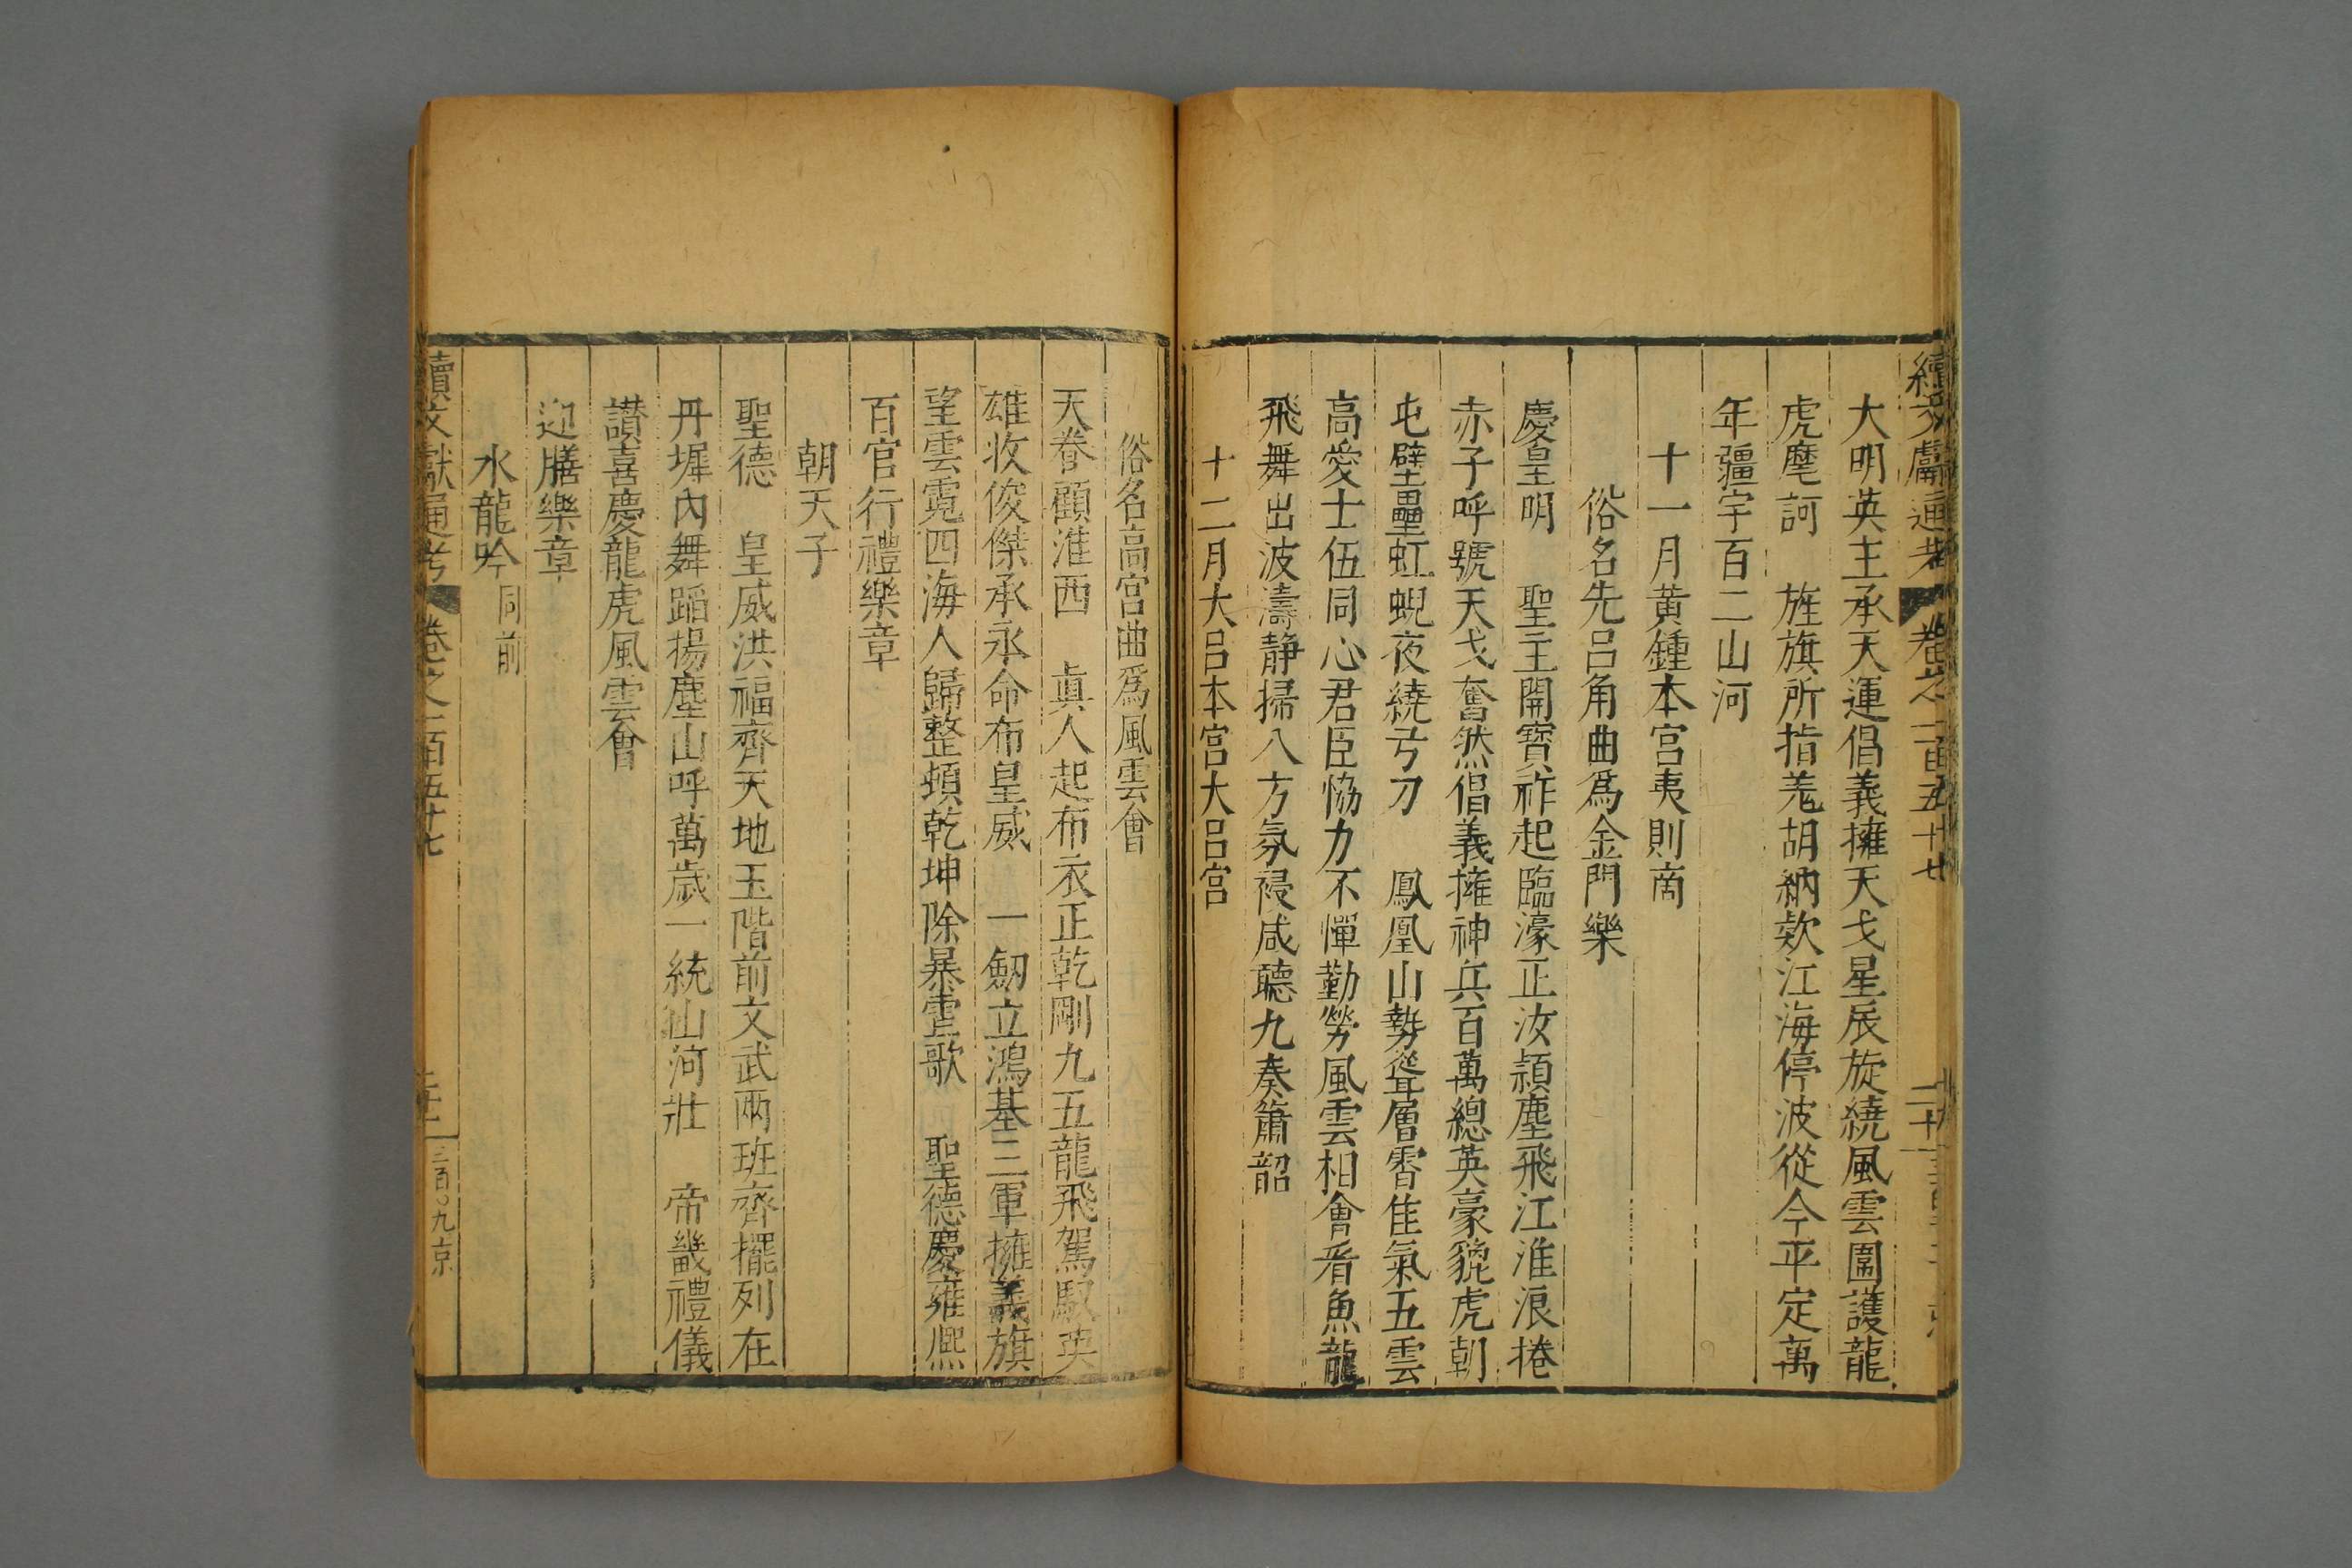 續文獻通考 卷之一百五十七 二十
大明英主承天運倡義擁天戈星辰旋繞風雲圍護龍
虎麾訶 旌旗所指羌胡納欵江海停波從今平定萬
年疆宇百二山河
十一月黃鍾本宮夷則商
俗名先呂角曲爲金門樂
慶皇明 聖主開寶祚起臨濠正汝頴塵飛江淮浪捲
赤子呼號天戈奮然倡義擁神兵百萬總英豪貔虎朝
屯壁壘虹蜺夜繞弓刀 鳳凰山勢聳層霄佳氣五雲
高愛士伍同心君臣恊力不憚勤勞風雲相會看魚龍
飛舞出波濤静掃八方氛祲咸聽九奏簫韶
十二月大呂本宮大呂宮
俗名高宮曲爲風雲會
天眷顧淮西 眞人起布衣正乾剛九五龍飛駕馭英
雄收俊傑承永命布皇威 一劒立鴻基三軍擁義旗
望雲霓四海人歸整頓乾坤除暴虐歌 聖德慶雍熈
百官行禮樂章
朝天子
聖德 皇威洪福齊天地玉階前文武兩班齊擺列在
丹墀內舞蹈揚塵山呼萬歲一統山河壯 帝畿禮儀
讃喜慶龍虎風雲會
迎膳樂章
水龍吟同前
續文獻通考 卷之一百五十七 三百〇九京